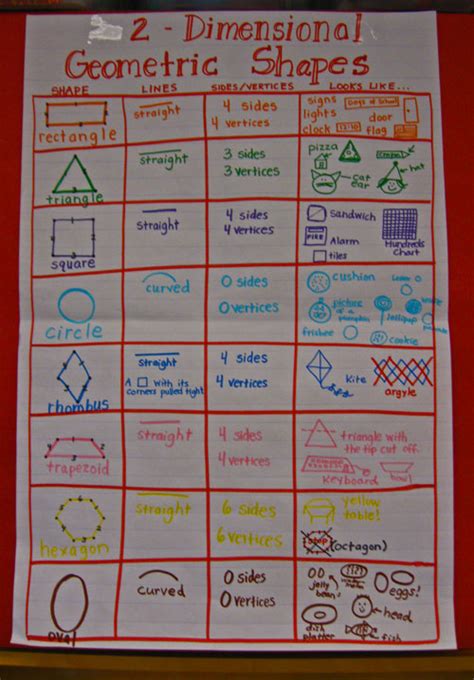 2 - Dimensional
Geometric Shapes
SHAPE LINES SIDES/VERTICES LOOKS LIKE...
rectangle
straight
4 sides
4 vertices
signs
lights
clock 12:10
Days of School
door
flag
triangle
straight
3 sides
3 vertices
pizza
hat
cat
ear
square
straight
4 sides
4 vertices
sandwich
FIRE Alarm
tiles
Hundreds
Chart
circle
curved
0 sides
0 vertices
cushion
picture
of a
pumpkin
lollipop
frisbee
cookie
rhombus
straight
A with its
corners pulled tight
4 sides
4 vertices
kite
argyle
trapezoid
straight
4 sides
4 vertices
triangle with
the tip cut off.
keyboard
bowl
hexagon
straight
6 sides
6 vertices
yellow
table!
stop (octagon)
oval
curved
0 sides
0 vertices
jelly
beans
eggs!
head
dish
platter
fish